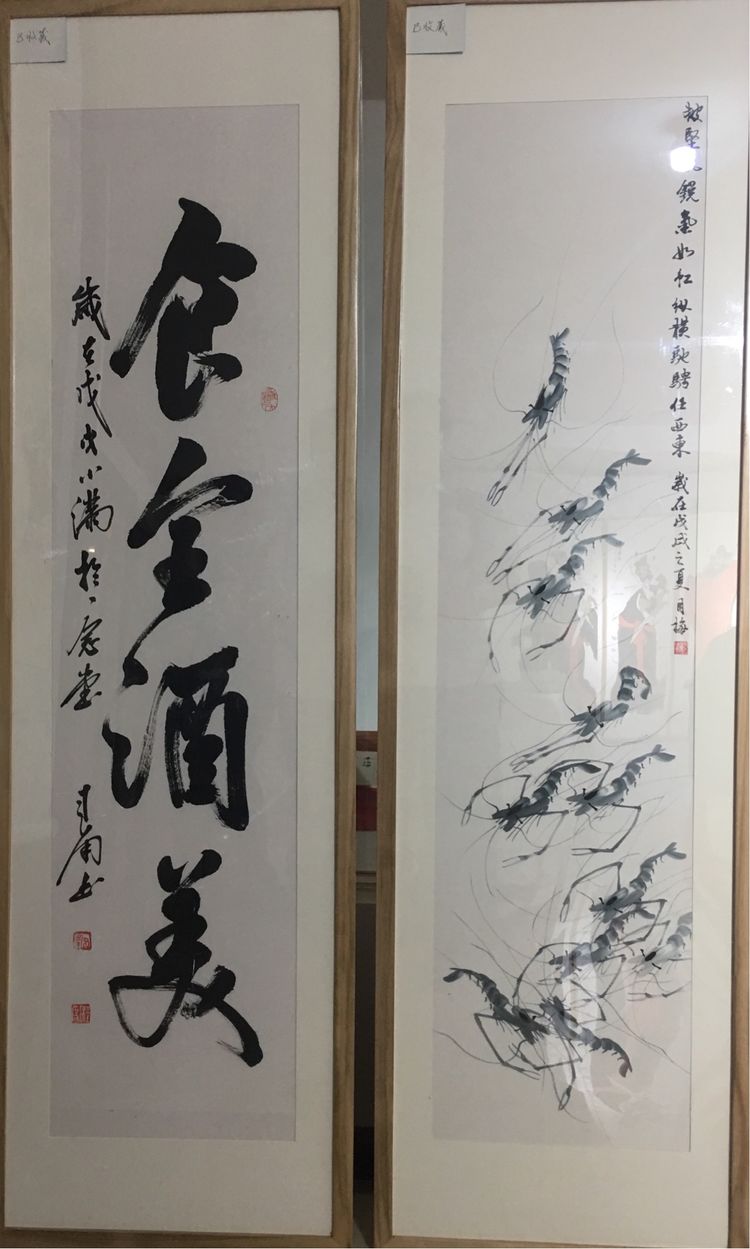 已收藏
食全酒美
歲在戊戌小满於一念堂
书
已收藏
被堅鋭氣如虹纵横馳騁任西東 歲在戊戌之夏 月梅